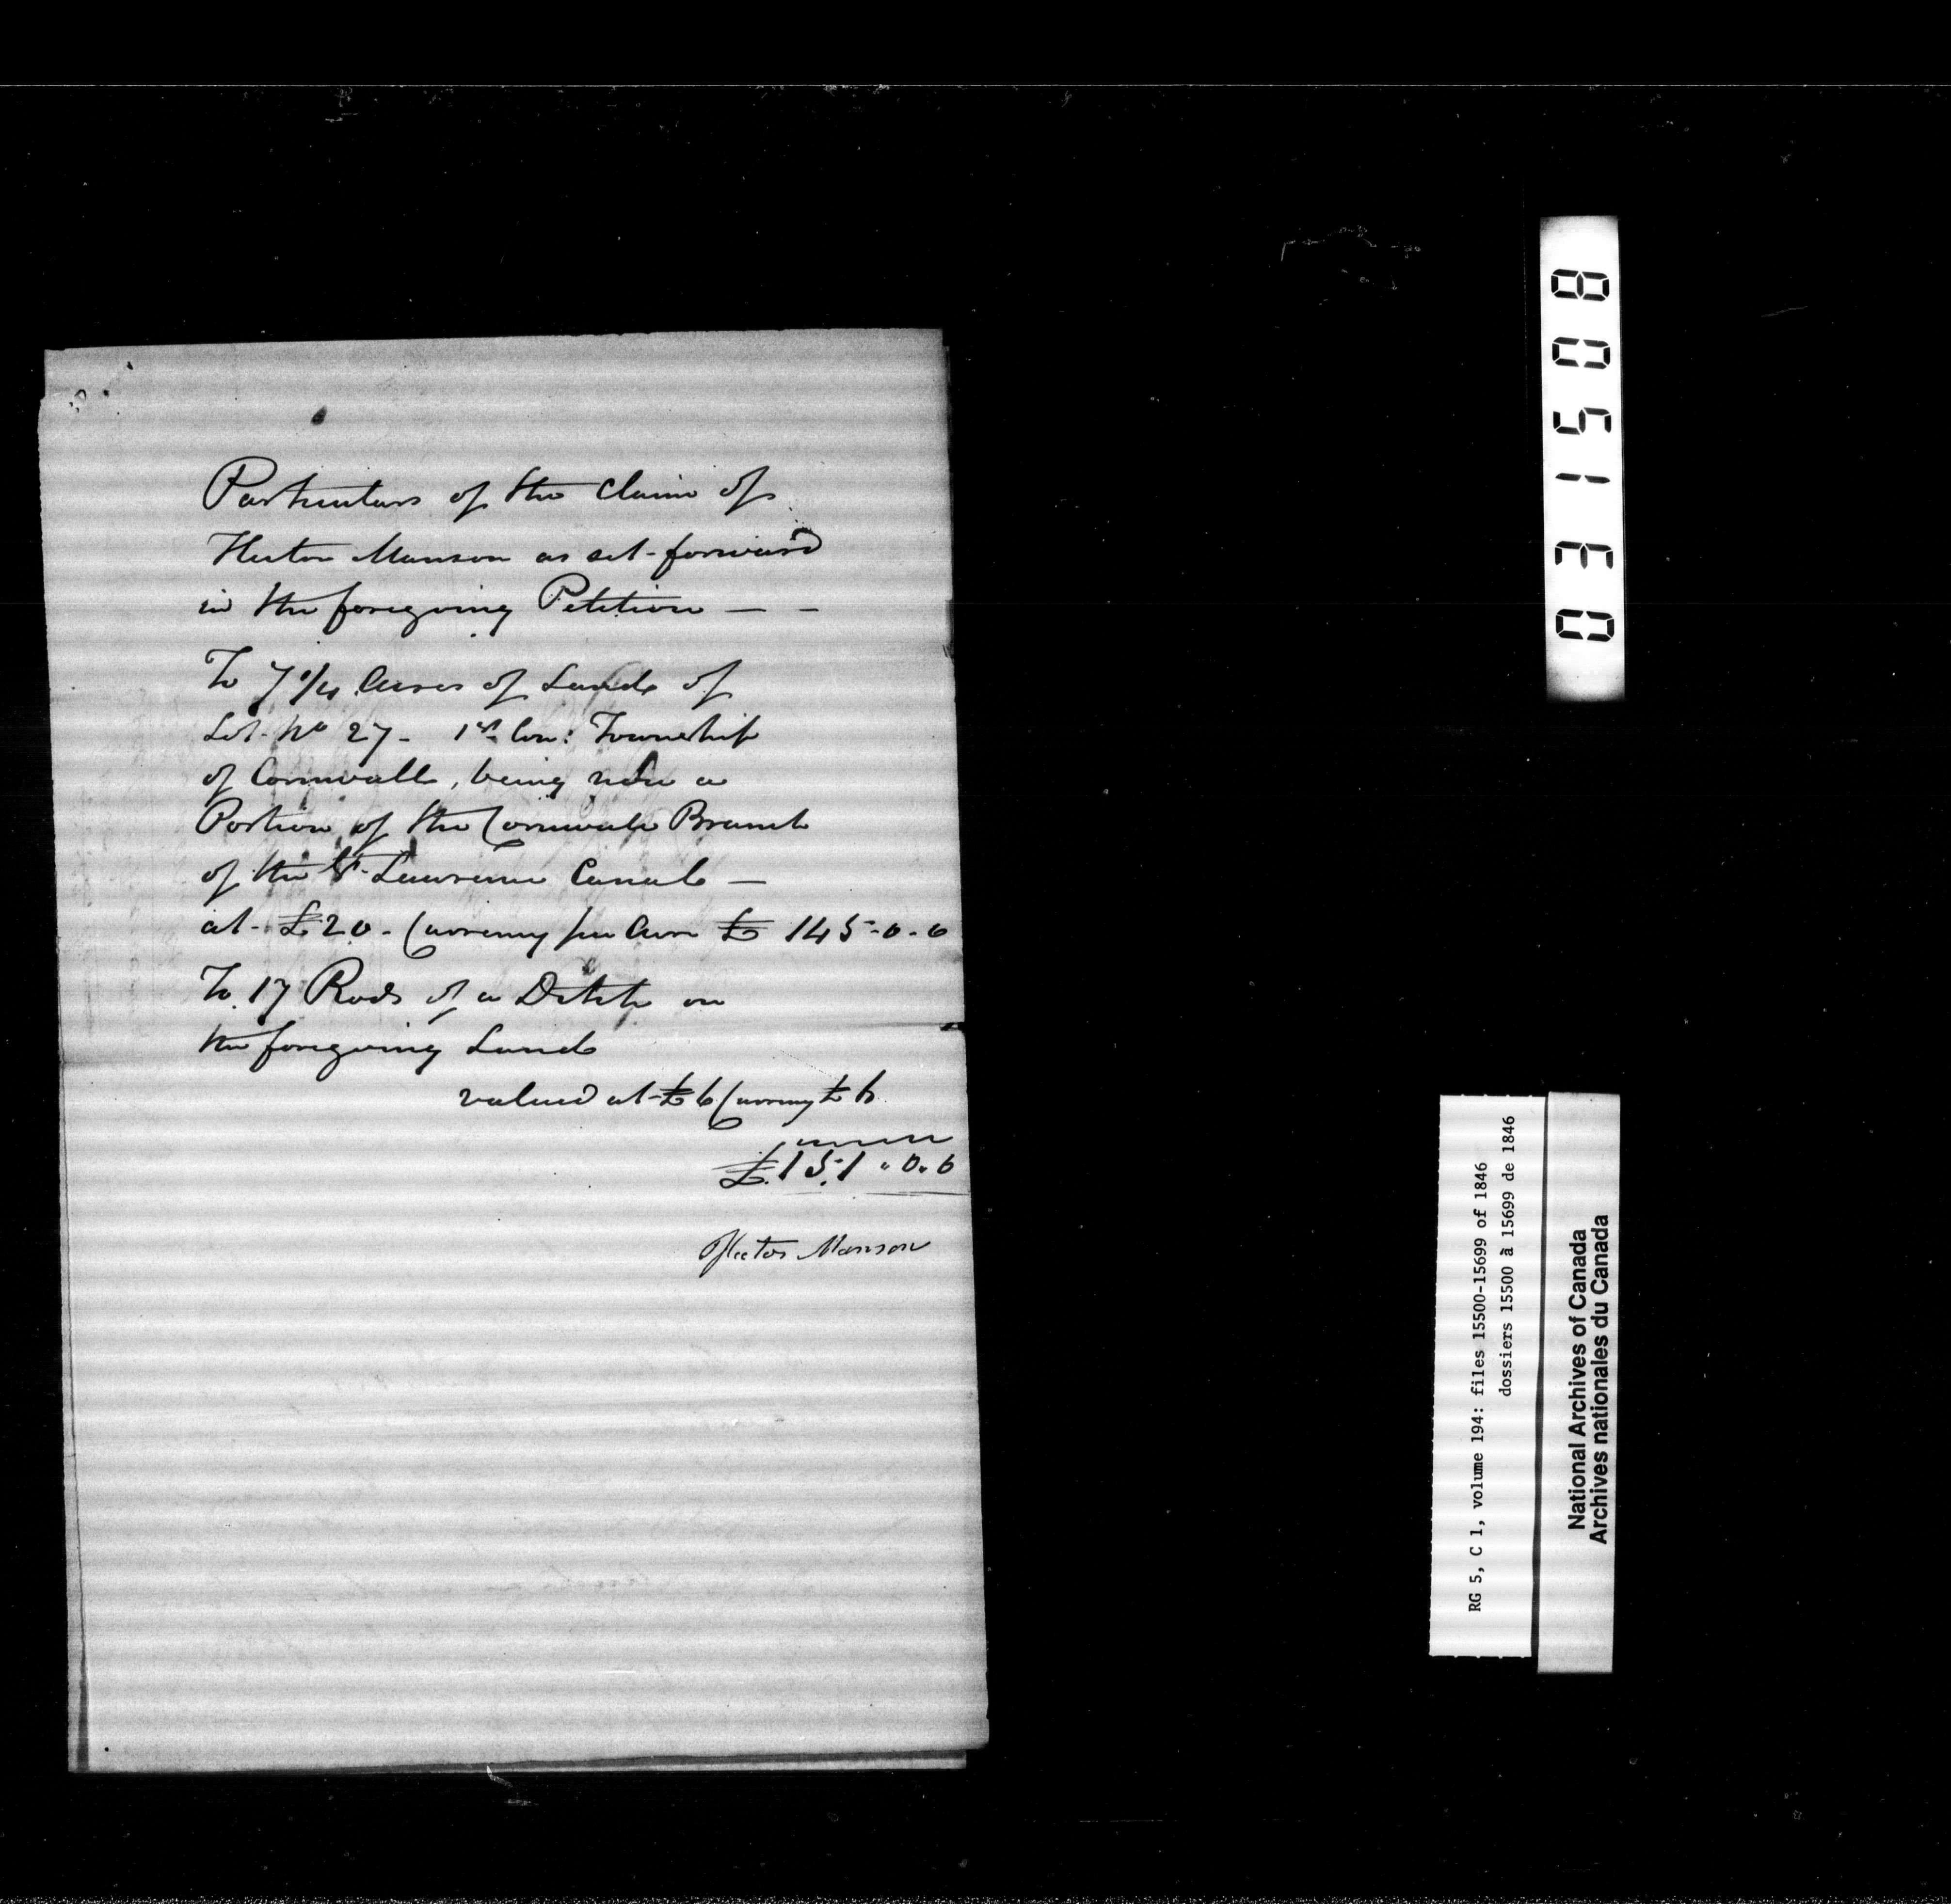 Particulars of the Claim of
Hector Manson as set-forward
in the foregoing Petition — –
To 7 1/4 Acres of Land of
Lot No 27 - 1st Con: Township
of Cornwall, being now a
Portion of the Cornwall Branch
of the St Lawrence Canal —
at £20 - Currency per Acre £ 145-0-0
To 17 Rods of a Ditch on
the foregoing Land
valued at £6 Currency £ 6
£151 " 0 " 0
Hector Manson
031508
RG 5, C 1, volume 194: files 15500-15699 of 1846
dossiers 15500 à 15699 de 1846
National Archives of Canada
Archives nationales du Canada